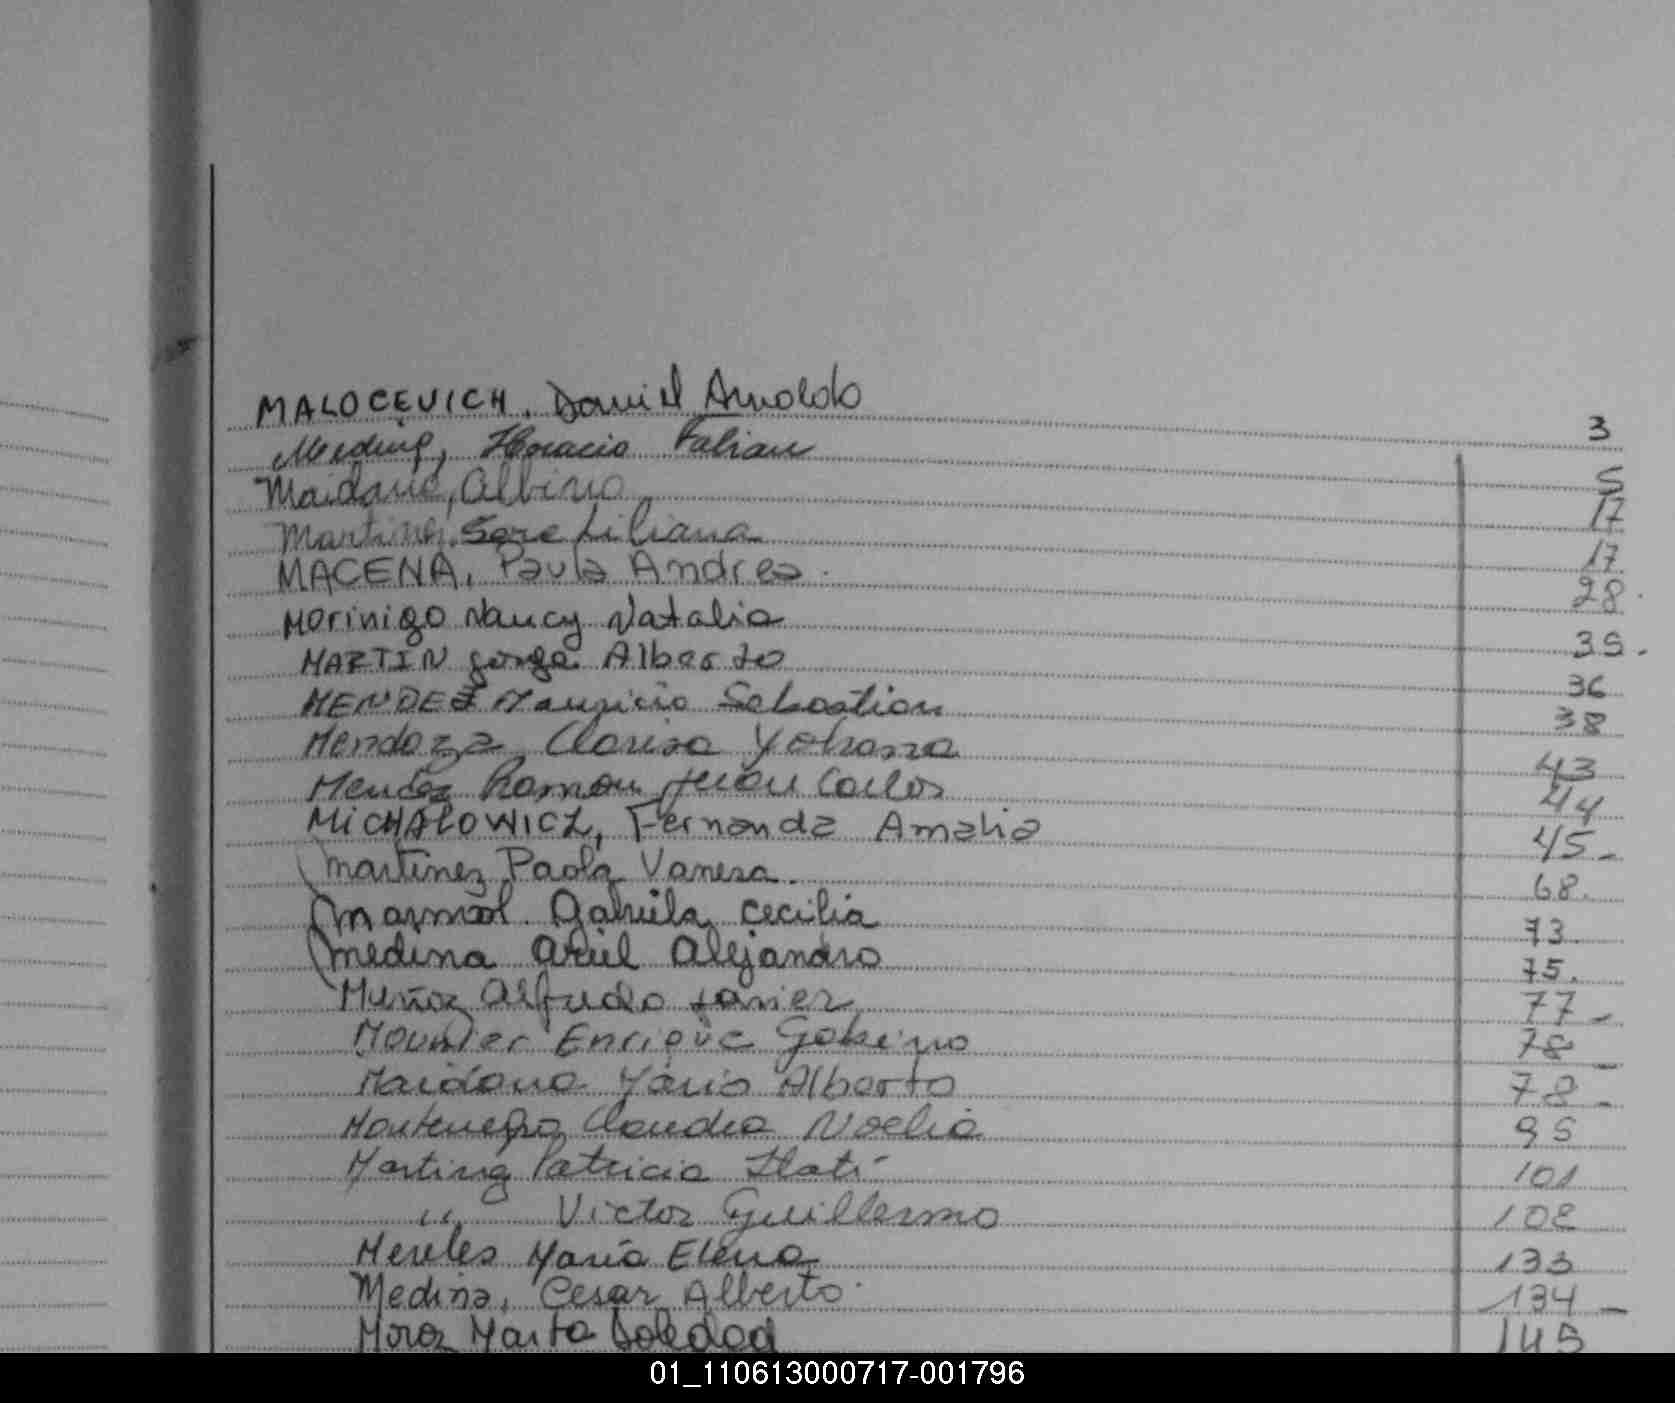 MALOCEVICH. Daniel Arnoldo 3
Horacio Fabian 5
Maidana, Albino 17
Martinez Sara Liliana 17
MACENA, Paula Andrea. 28.
Morinigo Nancy Natalia 35.
MARTIN Jorge Alberto 36
MENDEZ Mauricio Sebastian 38
Mendoza Clarisa Yohana 43
Mendez Ramon Juan Carlos 44
MICHALOWICZ, Fernanda Amalia 45-
Martinez Paola Vanesa. 68.
Marmol Gabriela Cecilia 73.
Medina Ariel Alejandro 75.
Muñoz Alfredo Javier 77-
Mounier Enrique Gabino 78-
Maidana Mario Alberto 78-
Montenegro Claudia Noelia 95
Martinez Patricia Itatí 101
" Victor Guillermo 108
Mereles María Elena 133
Medina, Cesar Alberto. 134-
Marta Soledad 145
01_110613000717-001796